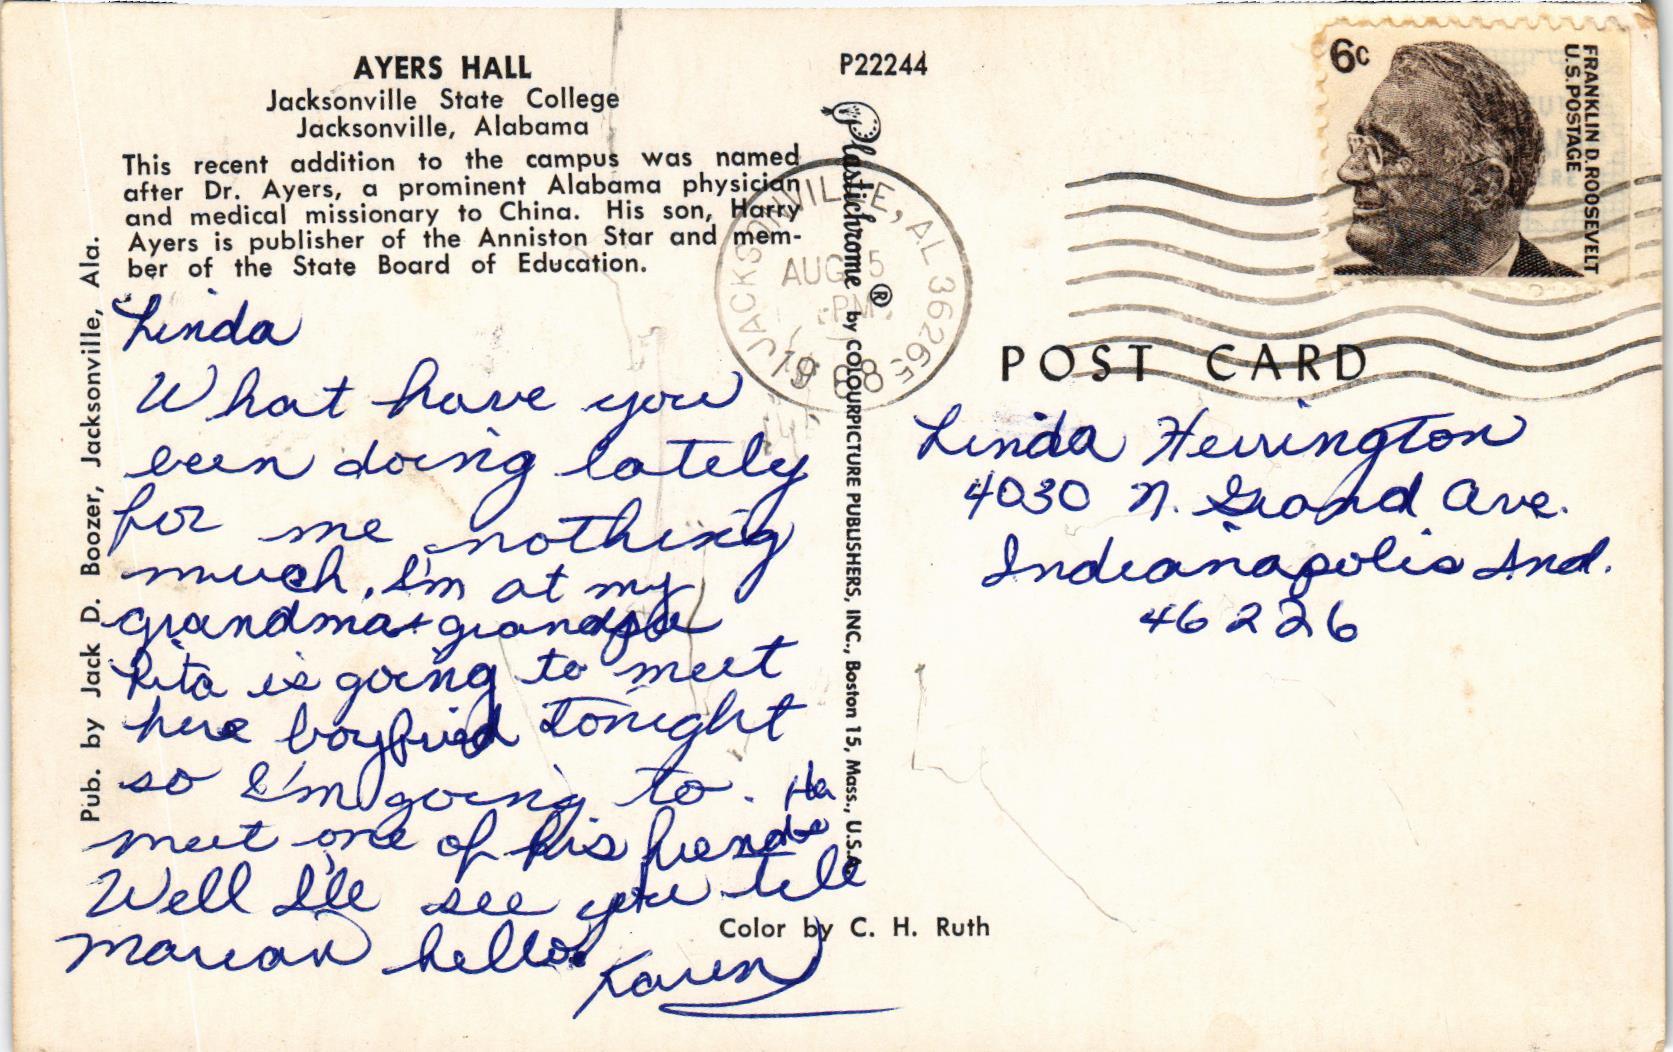 AYERS HALL
Jacksonville State College
Jacksonville, Alabama
This recent addition to the campus was named
after Dr. Ayers, a prominent Alabama physician
and medical missionary to China. His son, Harry
Ayers is publisher of the Anniston Star and mem-
ber of the State Board of Education.
Pub. by Jack D. Boozer, Jacksonville, Ala.
Linda
What have you
been doing lately
for me nothing
much. I'm at my
grandma + grandpa
Rita is going to meet
here boyfried tonight
so I'm going to. Ha
meet one of his friends
Well I'll see you tell
Marian hello.
Karen
P22244
Plastichrome ® by COLOURPICTURE PUBLISHERS, INC., Boston 15, Mass., U.S.A.
Color by C. H. Ruth
JACKSONVILLE, AL 36265
AUG 5
PM
1968
6c
FRANKLIN D. ROOSEVELT
U.S. POSTAGE
POST CARD
Linda Herrington
4030 N. Grand Ave.
Indianapolis Ind.
46226